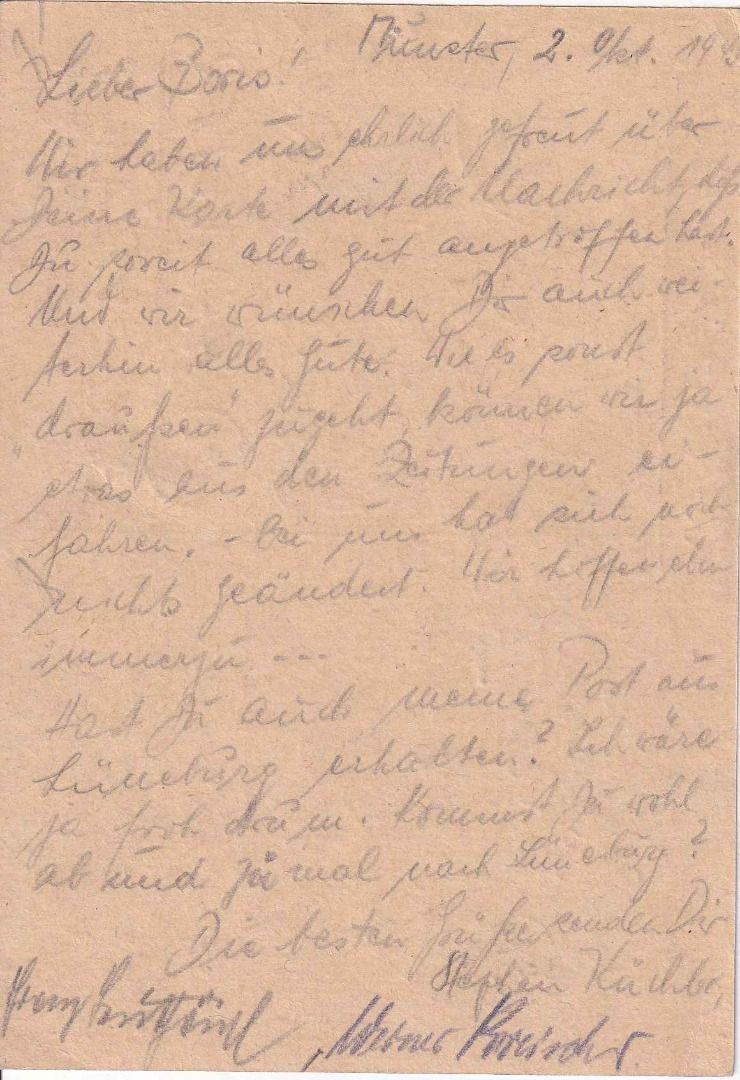 Münster, 2. Okt. 194
Lieber Boris!
Wir haben uns ehrlich gefreut über
Deine Karte mit der Nachricht, daß
Du soweit alles gut angetroffen hast.
Und wir wünschen Dir auch wei-
terhin alles Gute. Wie es sonst
„draußen" zugeht, können wir ja
etwas aus den Zeitungen er-
fahren. - Bei uns hat sich noch
nichts geändert. Wir hoffen eben
immerzu ---
Hast Du auch meine Post aus
Lüneburg erhalten? Ich wäre
ja froh drum. Kommst Du wohl
ab und zu mal nach Lüneburg?
Die besten Grüße senden Dir
Stephan
Werner